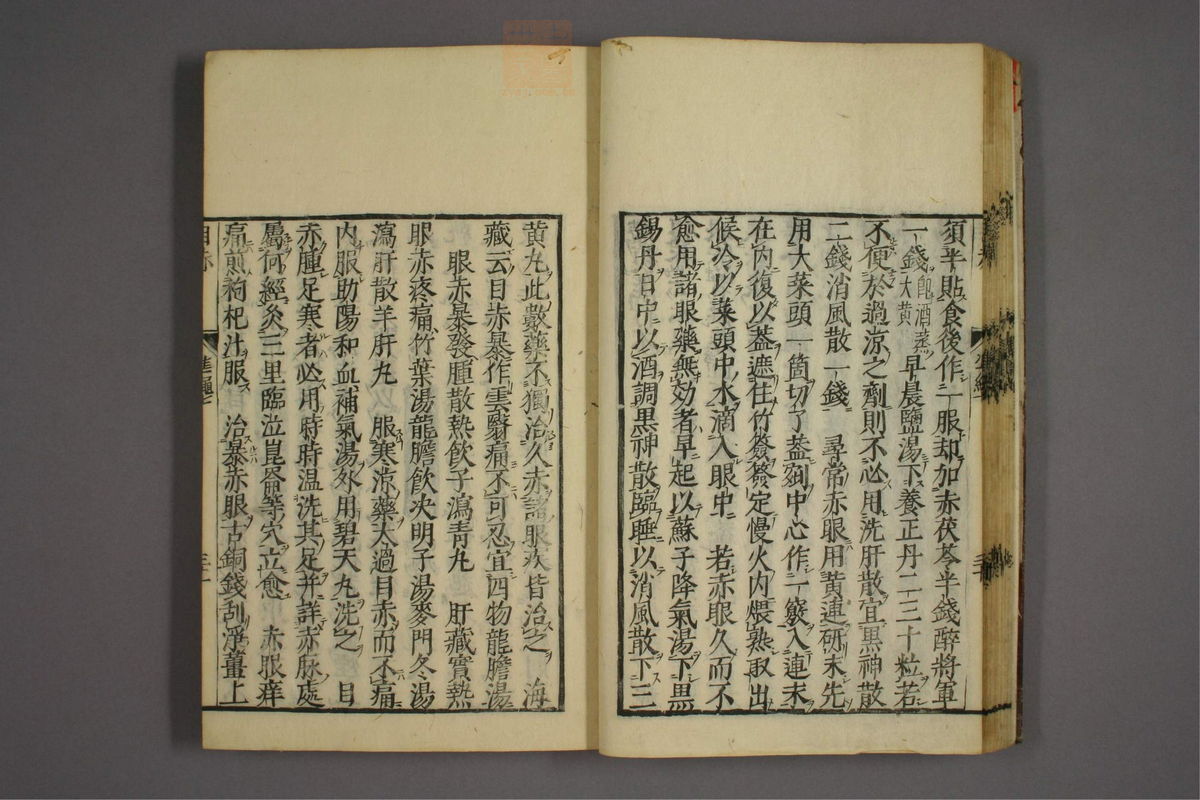 須半貼食後作一服却加赤茯苓半錢醉將軍
一錢即酒蒸大黃早晨鹽湯下養正丹二三十粒若
不便於過涼之劑則不必用洗肝散宜黒神散
二錢消風散一錢　尋常赤眼用黄連研末先
用大菜頭一箇切了蓋剜中心作一竅入連末
在内復以蓋遮住竹簽簽定慢火内煨熟取出
候冷以菜頭中水滴入眼中　若赤眼久而不
愈用諸眼藥無効者早起以蘇子降氣湯下黒
錫丹日中以酒調黒神散臨睡以消風散下三
黄丸此數藥不獨治久赤諸眼疾皆治之　海
藏云目赤暴作雲翳痛不可忍宜四物龍膽湯
眼赤暴發腫散熱飲子瀉青丸　肝藏實熱
眼赤疼痛竹葉湯龍膽飲决明子湯麥門冬湯
瀉肝散羊肝丸　服寒涼藥太過目赤而不痛
内服助陽和血補氣湯外用碧天丸洗之　目
赤腫足寒者必用時時温洗其足并詳赤脉處
屬何經灸三里臨泣崑崙等穴立愈　赤眼痒
痛煎枸杞汁服　治暴赤眼古銅錢刮淨薑上
目赤　準繩七